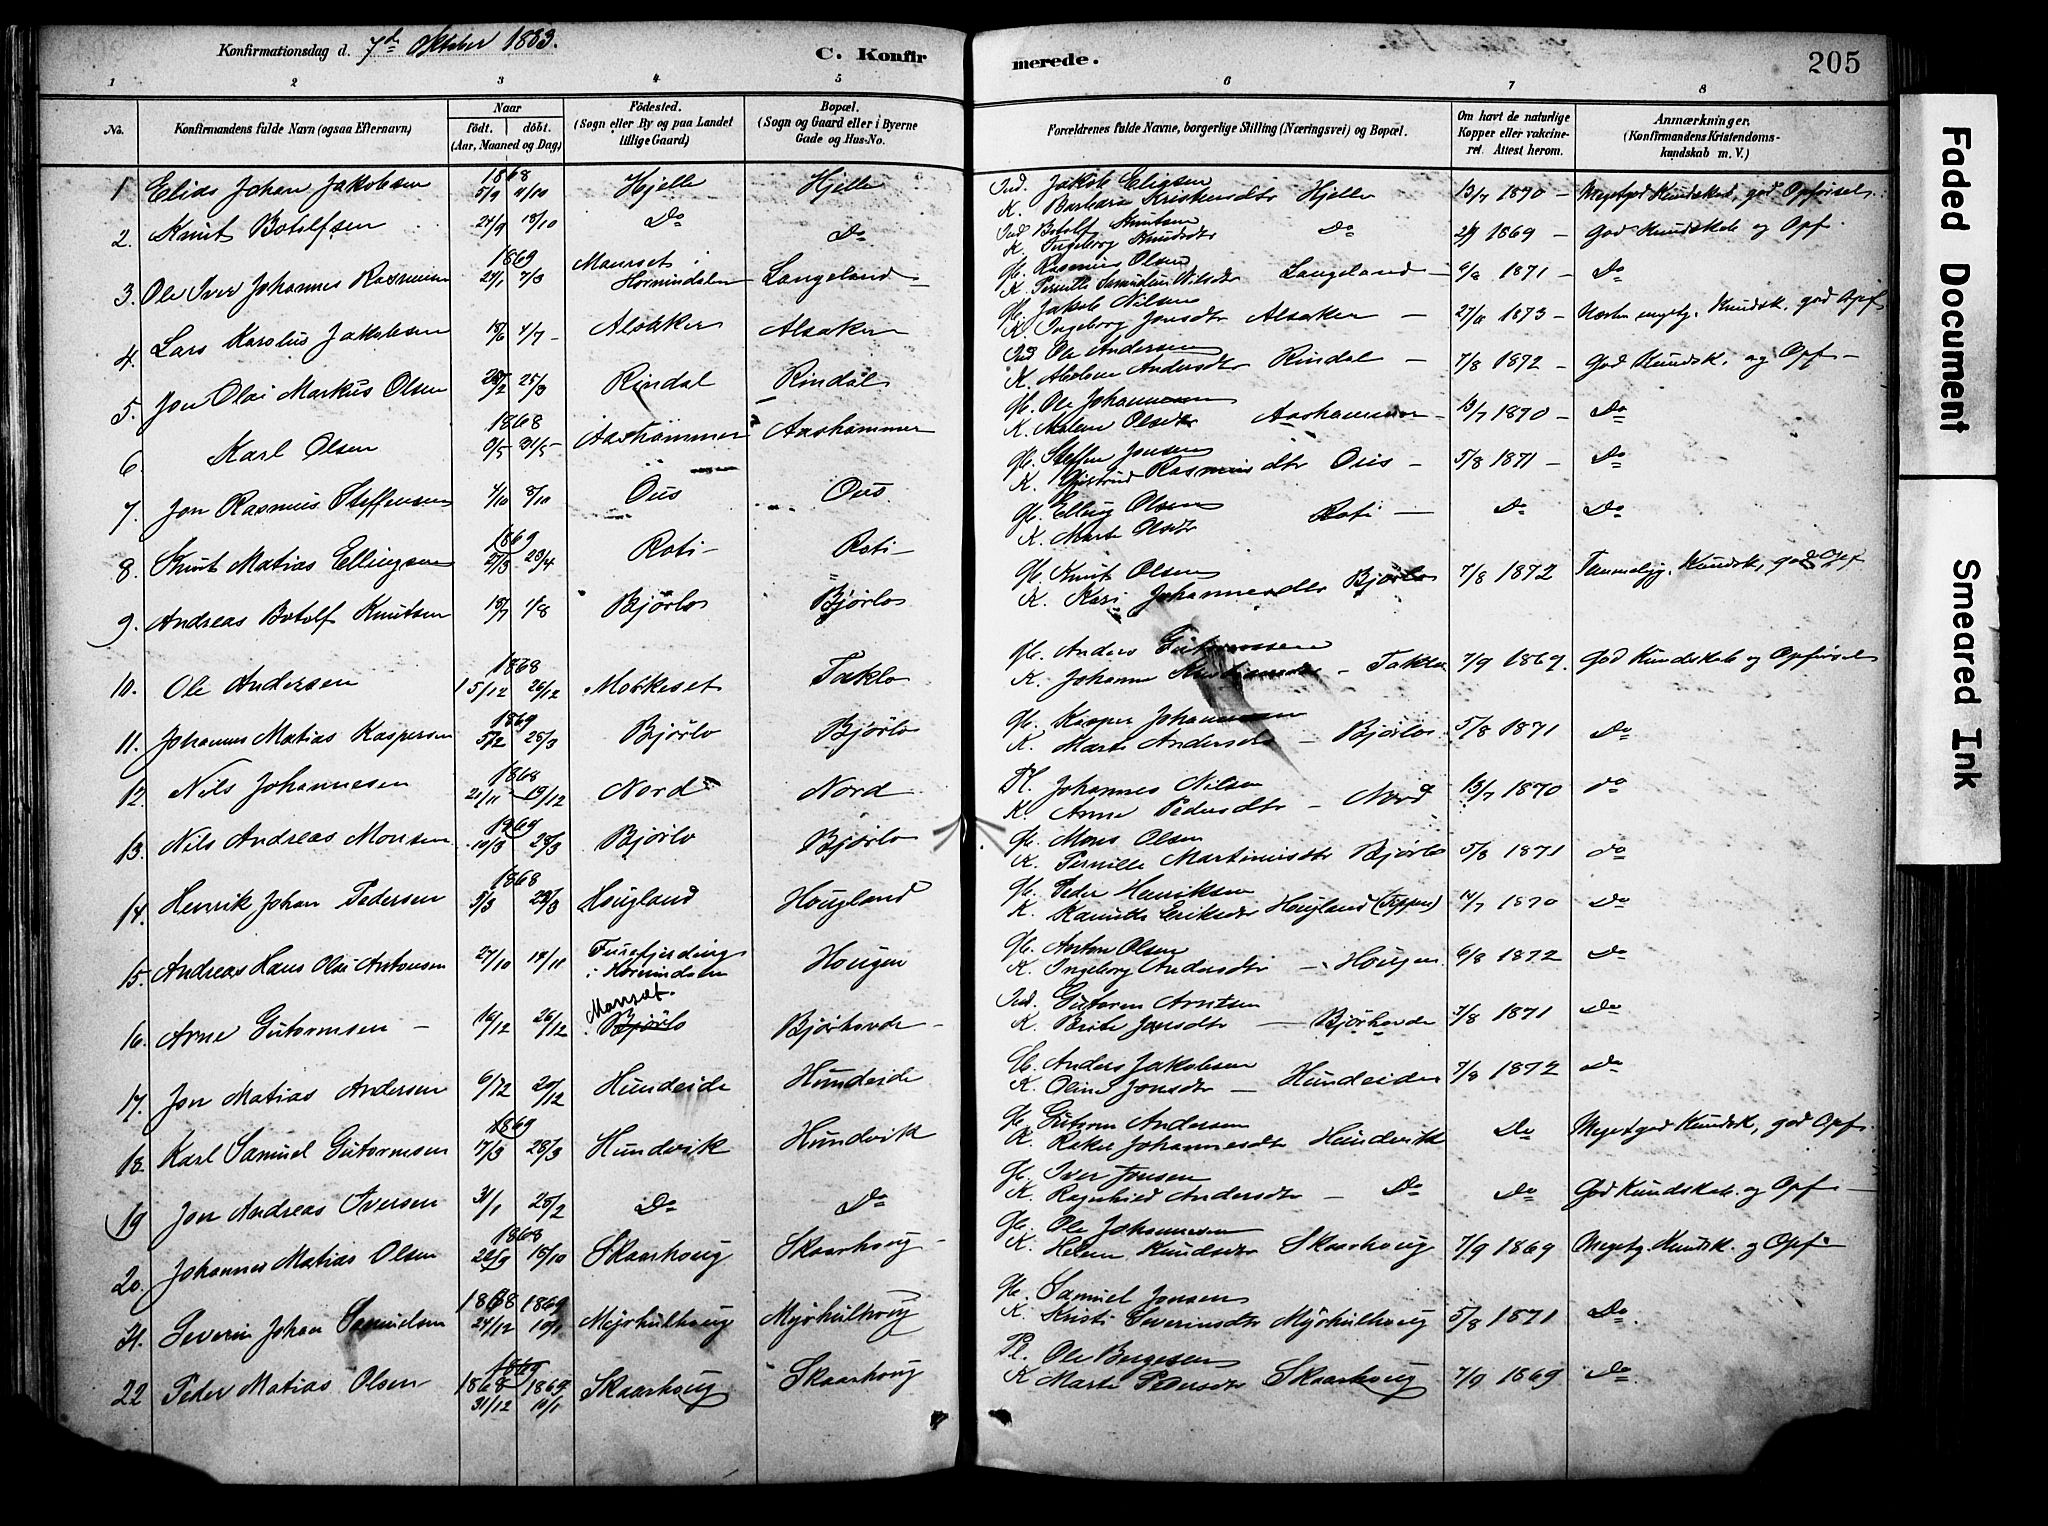 Konfirmationsdag d. 7de Oktober 1883.
C. Konfirmerede.
205
1 2 3 4 5 6 7 8
No.
Konfirmandens fulde Navn (ogsaa Efternavn)
Naar födt. döbt. (Aar, Maaned og Dag)
Födested. (Sogn eller By og paa Landet tillige Gaard)
Bopæl. (Sogn og Gaard eller i Byerne Gade og Hus-No.
Forældrenes fulde Navne, borgerlige Stilling (Næringsvei) og Bopæl.
Om havt de naturlige Kopper eller vakcineret. Attest herom.
Anmærkninger. (Konfirmandens Kristendomskundskab m. V.)
1 Elias Johan Jakobsen 1868 5/9 4/10 Hjelle Hjelle Ind. Jakob Eliasen K. Barbara Kristensdtr Hjelle 13/7 1870 - Megetgod Kundskab, god Opførsel.
2. Knut Botolfsen 24/9 18/10 Do Do Ind Botolf Knutsen K. Ingeborg Knudsdtr Do 1869 - God Kundskab og Opf.
3. Ole Iver Johannes Rasmusen 1869 24/1 7/3 Maurset i Hornindalen Langeland Gb. Rasmus Olsen K. Pernille Nilsdtr Langeland - 1871 - Do
4. Lars Karolus Jakobsen 4/7 - Alsaker Alsaker Gb. Jakob Nilsen K. Ingeborg Jonsdtr Alsaker - 1873 - Næsten megetg. Kundsk. god Opf.
5. Jon Olai Markus Olsen 25/3 Rindal Rindal Ind Ole Andersen K. Andersdtr Rindal - 7/8 1872 - God Kundsk. og Opf -
6. Karl Olsen 1868 31/5 - Aashammer Aashammer Gb. Ole Johannesen K. Malene Olsdtr Aashammer - 13/7 1870 - Do
7. Jon Rasmus Steffensen 4/10 8/10 Ous Ous Gb. Steffen Jonsen K. Rasmusdtr Ous - 5/8 1871 - Do
8. Knut Matias Ellingsen 1869 27/3 23/4 Roti - Roti - Gb. Elling Olsen K. Marte Olsdtr Roti - Do Do
9. Andreas Botolf Knutsen 1/8 Bjørlo Bjørlo Gb. Knut Olsen K. Kari Johannesdtr Bjørlo 7/8 1872 Temmelig. Kundsk., god Opf
10. Ole Andersen 1868 15/12 26/12 Mokkeset Taklo Gb. Anders K. Johanne - Taklo 7/9 1869. God Kundskab og Opførsel
11. Johannes Matias Kaspersen 1869 5/2 28/3 Bjørlo Bjørlo Gb. Kasper Johannesen K. Marte Andersdtr - Bjørlo 5/8 1871 Do
12. Nils Johannesen 1868 21/11 13/12 Nord Nord Pl. Johannes Nilsen K. Anne Pedersdtr - Nord 13/7 1870 do
13. Nils Andreas Monsen 1869 10/3 28/3 Bjørlo Bjørlo Gb. Mons Olsen K. Pernille Martinusdtr Bjørlo 5/8 1871 do
14. Henrik Johan Pedersen 1868 5/3 29/3 Hougland Hougland Gb. Peder Henriksen K. Eriksdtr Hougland 14/7 1870 Do
15. Andreas Hans Olai Antonsen 27/10 11 i Hornindalen Hougen Gb. Anton Olsen K. Ingeborg Andersdtr - Hougen 6/8 1872 Do
16. Arne Gutormsen - 16/12 26/12 Maurset. Bjørlo Bjørhovde - Ind. Gutorm Arntsen K. Brite Jonsdtr - Bjørhovde 7/8 1871 Do
17. Jon Matias Andersen 6/12 20/12 Hundeide Hundeide Gb. Anders Jakobsen K. Oline Jonsdtr - Hundeide 7/8 1872 Do
18. Karl Samuel Gutormsen 1869 17/3 28/3 Hundvik Hundvik Gb. Gutorm Andersen K. Johannesdtr Hundvik Do Megetgod Kundsk., god Opf.
19 Jon Andreas Iversen 31/1 28/2 Do Do Gb. Iver Jonsen K. Ragnhild Andersdtr - Do Do God Kundskab og Opf -
20. Johannes Matias Olsen 1868 26/9 18/10 Skaarhoug Skaarhoug - Gb. Ole Johannesen K. Helene Knudsdtr Skaarhoug 7/9 1869 Megetg. Kundsk. og Opf.
21. Severin Johan Samuelsen 1868 1869 24/12 10/1 Myrhulhoug Myrhulhoug Gb. Samuel Jonsen K. Kristi Severinsdtr Myrhulhoug 5/8 1871 Do.
22 Peder Matias Olsen 1869 1868 1869 31/12 10/1 Skaarhoug Skaarhoug Pl. Ole Børgesen K Marte Pedersdtr Skaarhoug 7/9 1869 Do.
Faded Document
Smeared Ink